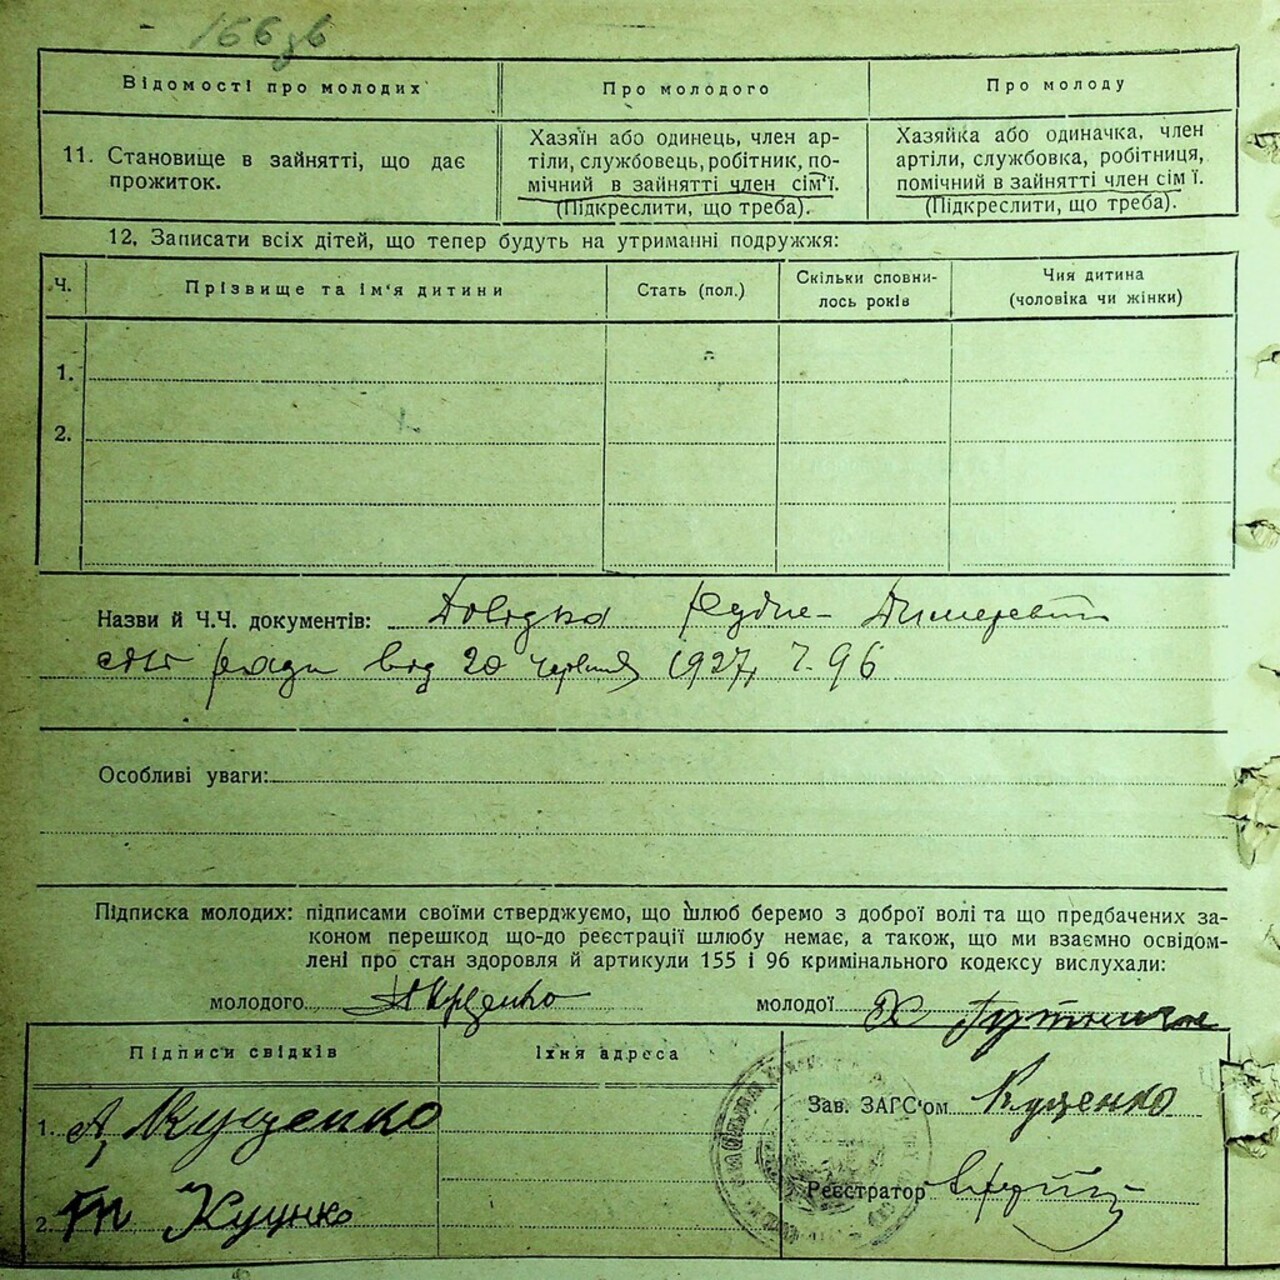 166 зв
Відомості про молодих
Про молодого
Про молоду
11. Становище в зайнятті, що дає
прожиток.
Хазяїн або одинець, член ар-
тілі, службовець, робітник, по-
мічний в зайнятті член сім'ї.
(Підкреслити, що треба).
Хазяйка або одиначка, член
артілі, службовка, робітниця,
помічний в зайнятті член сім ї.
(Підкреслити, що треба).
12. Записати всіх дітей, що тепер будуть на утриманні подружжя:
Ч.
Прізвище та ім'я дитини
Стать (пол.)
Скільки сповни-
лось років
Чия дитина
(чоловіка чи жінки)
1.
2.
Назви й Ч.Ч. документів: Довідка
ради від 20 червня 1927, ч. 96
Особливі уваги:
Підписка молодих: підписами своїми стверджуємо, що шлюб беремо з доброї волі та що предбачених за-
коном перешкод що-до реєстрації шлюбу немає, а також, що ми взаємно освідом-
лені про стан здоровля й артикули 155 і 96 кримінального кодексу вислухали:
молодого Куценко молодої
Підписи свідків
Їхня адреса
1. А. Куценко
2. Куценко
Зав. ЗАГС'ом Куценко
Реєстратор